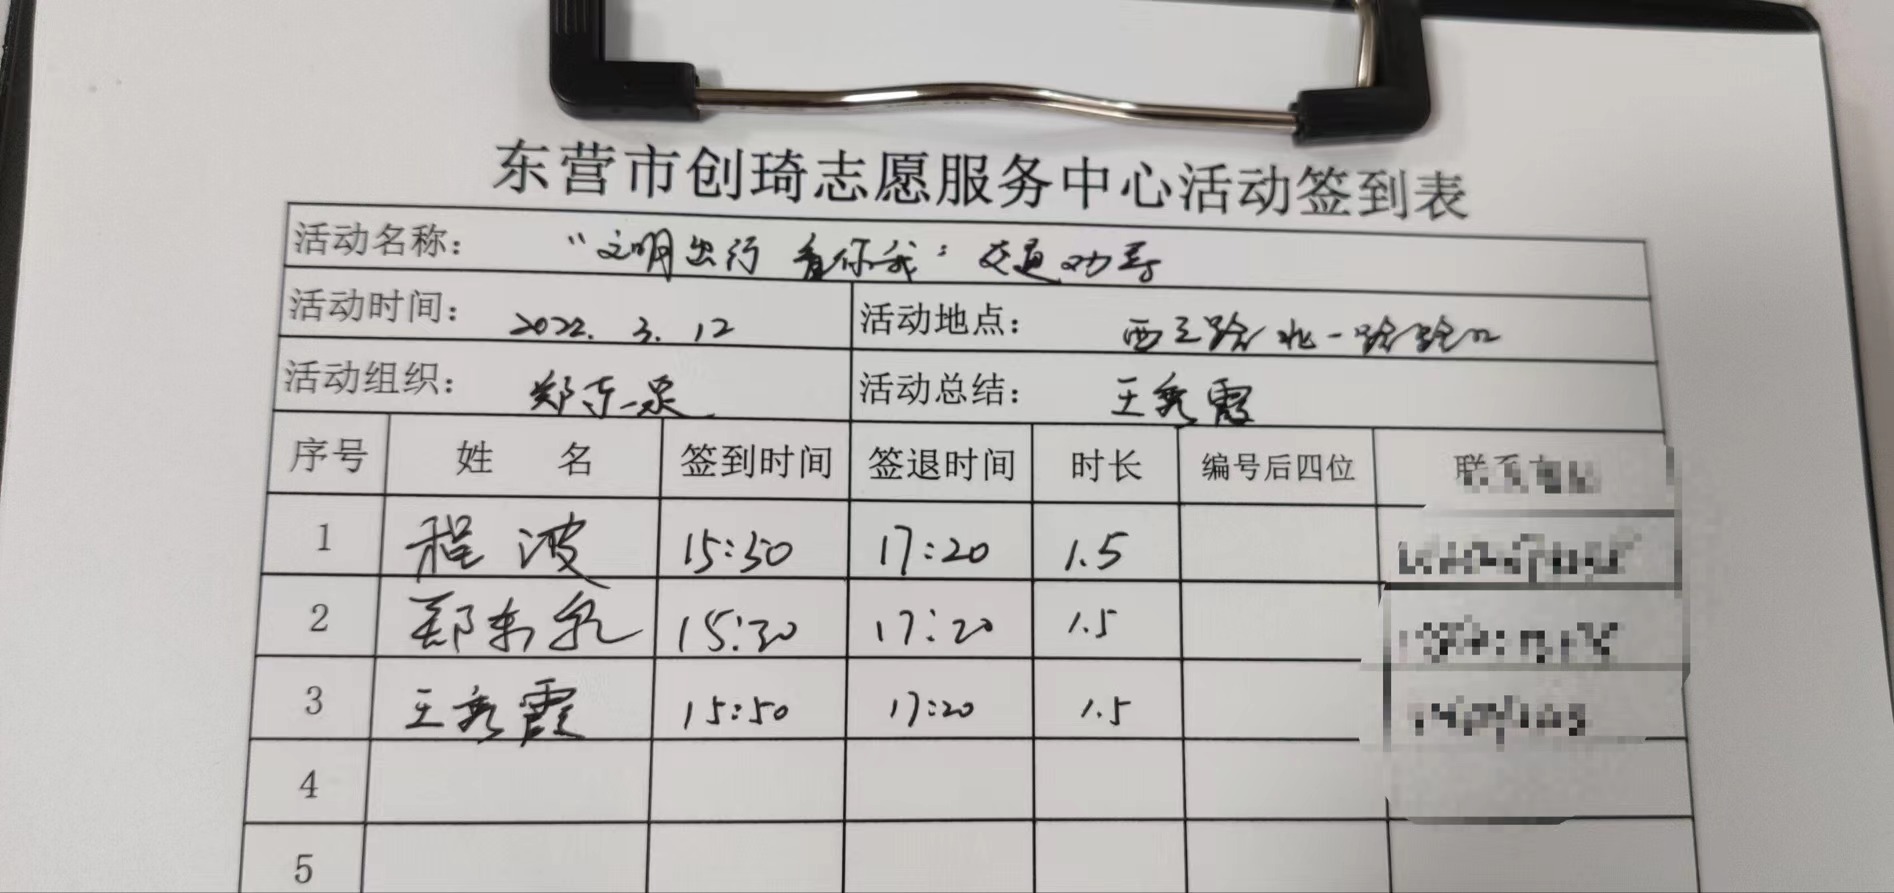 东营市创琦志愿服务中心活动签到表
活动名称： “文明出行 有你我”交通劝导
活动时间： 2022.3.12 活动地点： 西三路北一路路口
活动组织： 郑东泉 活动总结： 王秀霞
序号 姓 名 签到时间 签退时间 时长 编号后四位
1 程波 15:50 17:20 1.5
2 郑东泉 15:50 17:20 1.5
3 王秀霞 15:50 17:20 1.5
4
5